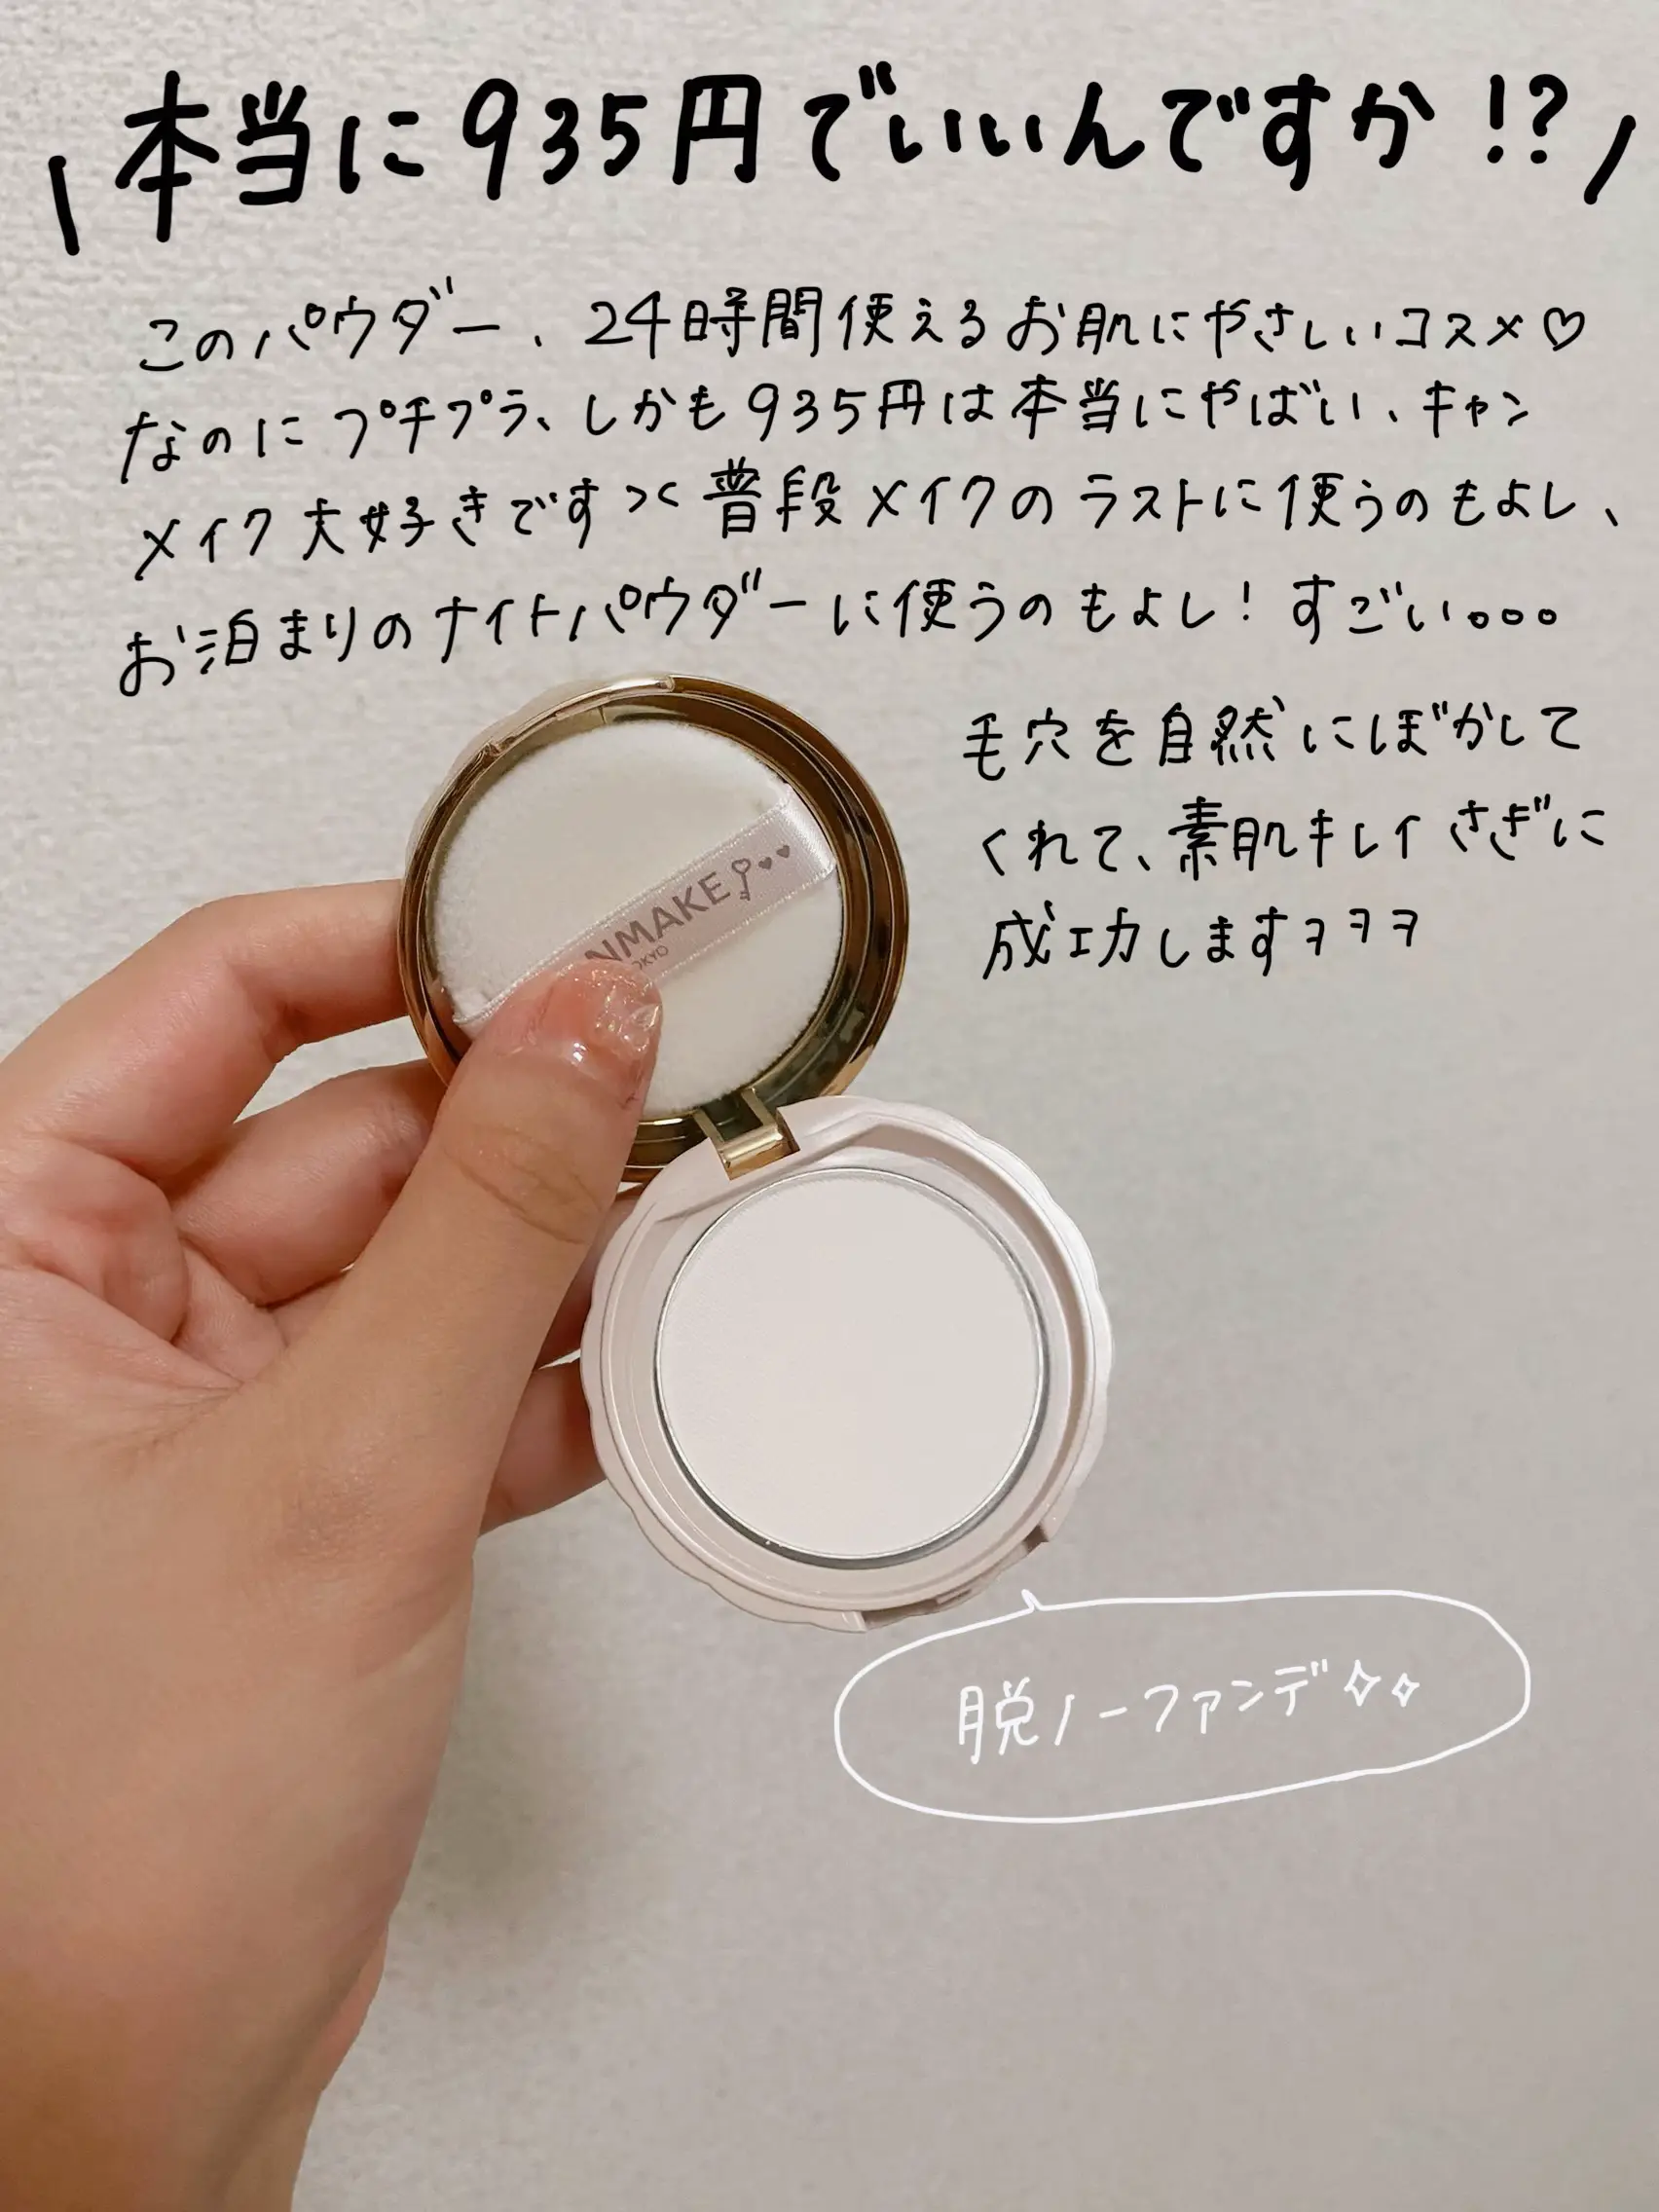 \ 本当に935円でいいんですか!? /
このパウダー、24時間使えるお肌にやさしいコスメ♡
なのにプチプラ、しかも935円は本当にやばい、キャン
メイク大好きです>< 普段メイクのラストに使うのもよし、
お泊まりのナイトパウダーに使うのもよし！すごい。。。
毛穴を自然にぼかして
くれて、素肌キレイさぎに
成功しますヲヲヲ
NMAKE
OKYO
脱ノーファンデ✧✧